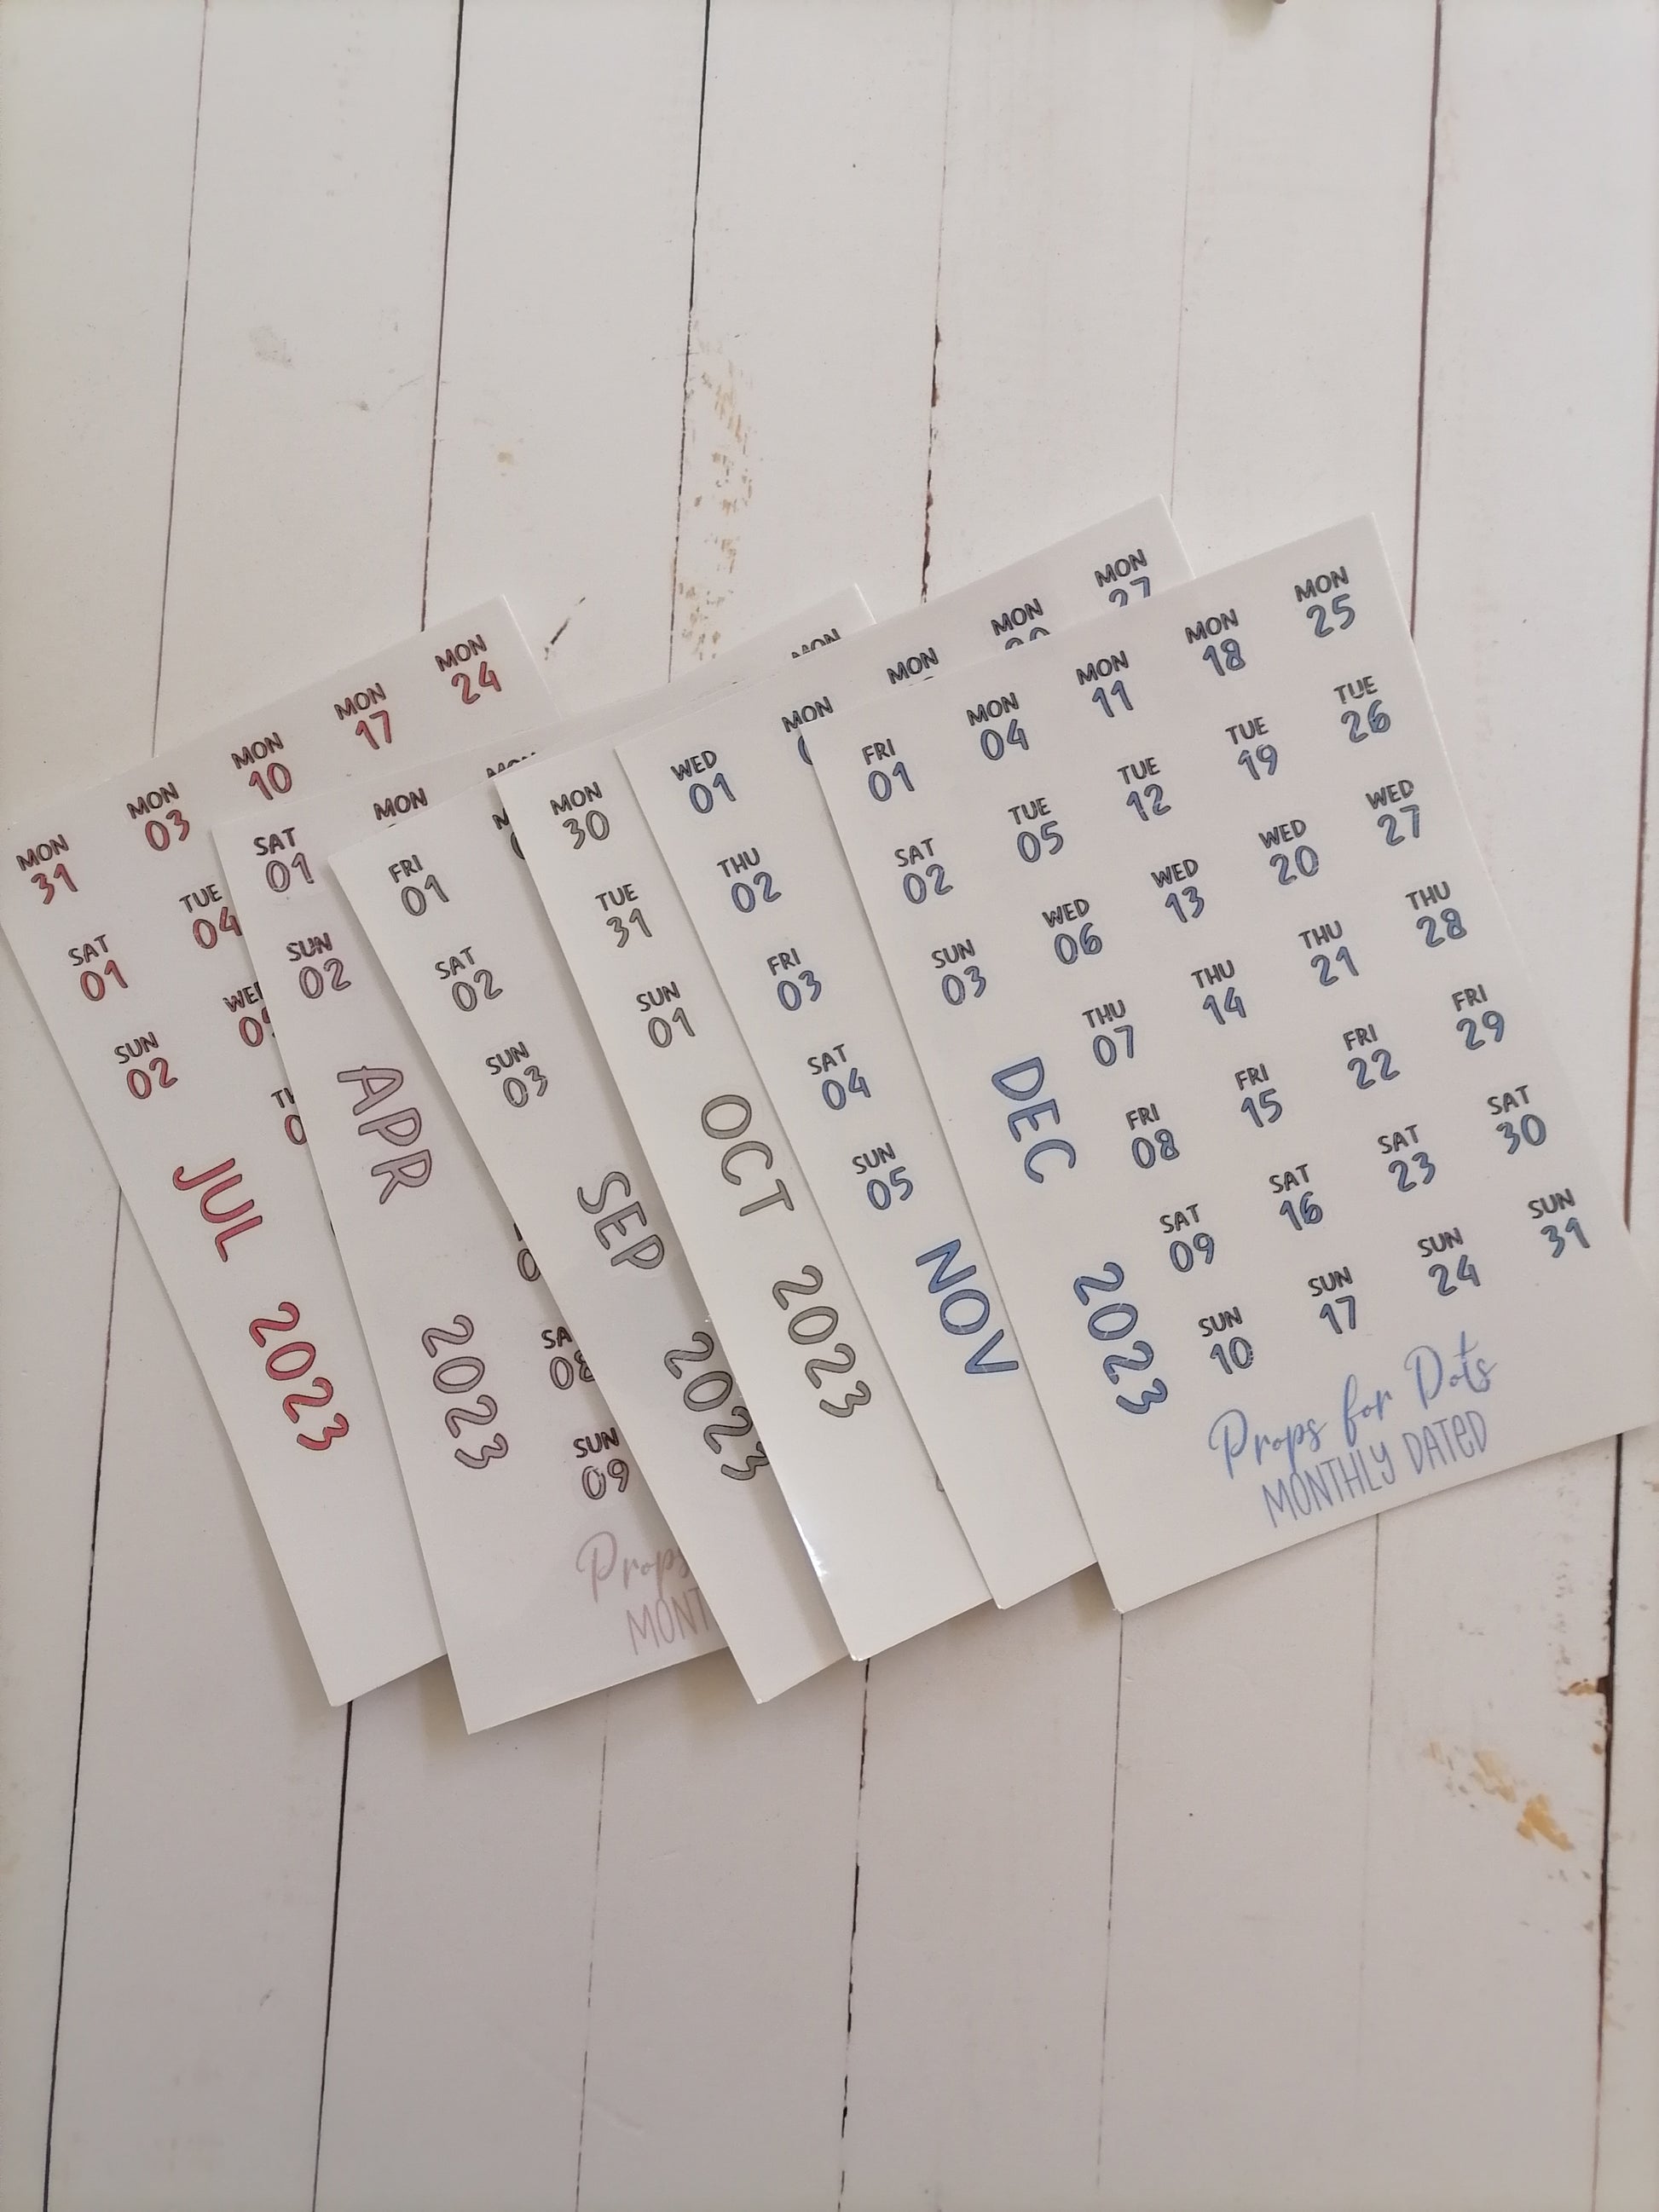 MON 31
MON 03
MON 10
MON 17
MON 24
SAT 01
TUE 04
SUN 02
JUL 2023
SAT 01
MON
SUN 02
APR 2023
SUN 09
Props
FRI 01
SAT 02
SUN 03
SEP 2023
MON 30
TUE 31
SUN 01
OCT 2023
MON
WED 01
MON
MON
MON
MON 27
THU 02
FRI 03
SAT 04
SUN 05
NOV
FRI 01
MON 04
MON 11
MON 18
MON 25
SAT 02
TUE 05
TUE 12
TUE 19
TUE 26
SUN 03
WED 06
WED 13
WED 20
WED 27
THU 07
THU 14
THU 21
THU 28
FRI 08
FRI 15
FRI 22
FRI 29
SAT 09
SAT 16
SAT 23
SAT 30
SUN 10
SUN 17
SUN 24
SUN 31
DEC 2023
Props for Dots
MONTHLY DATED